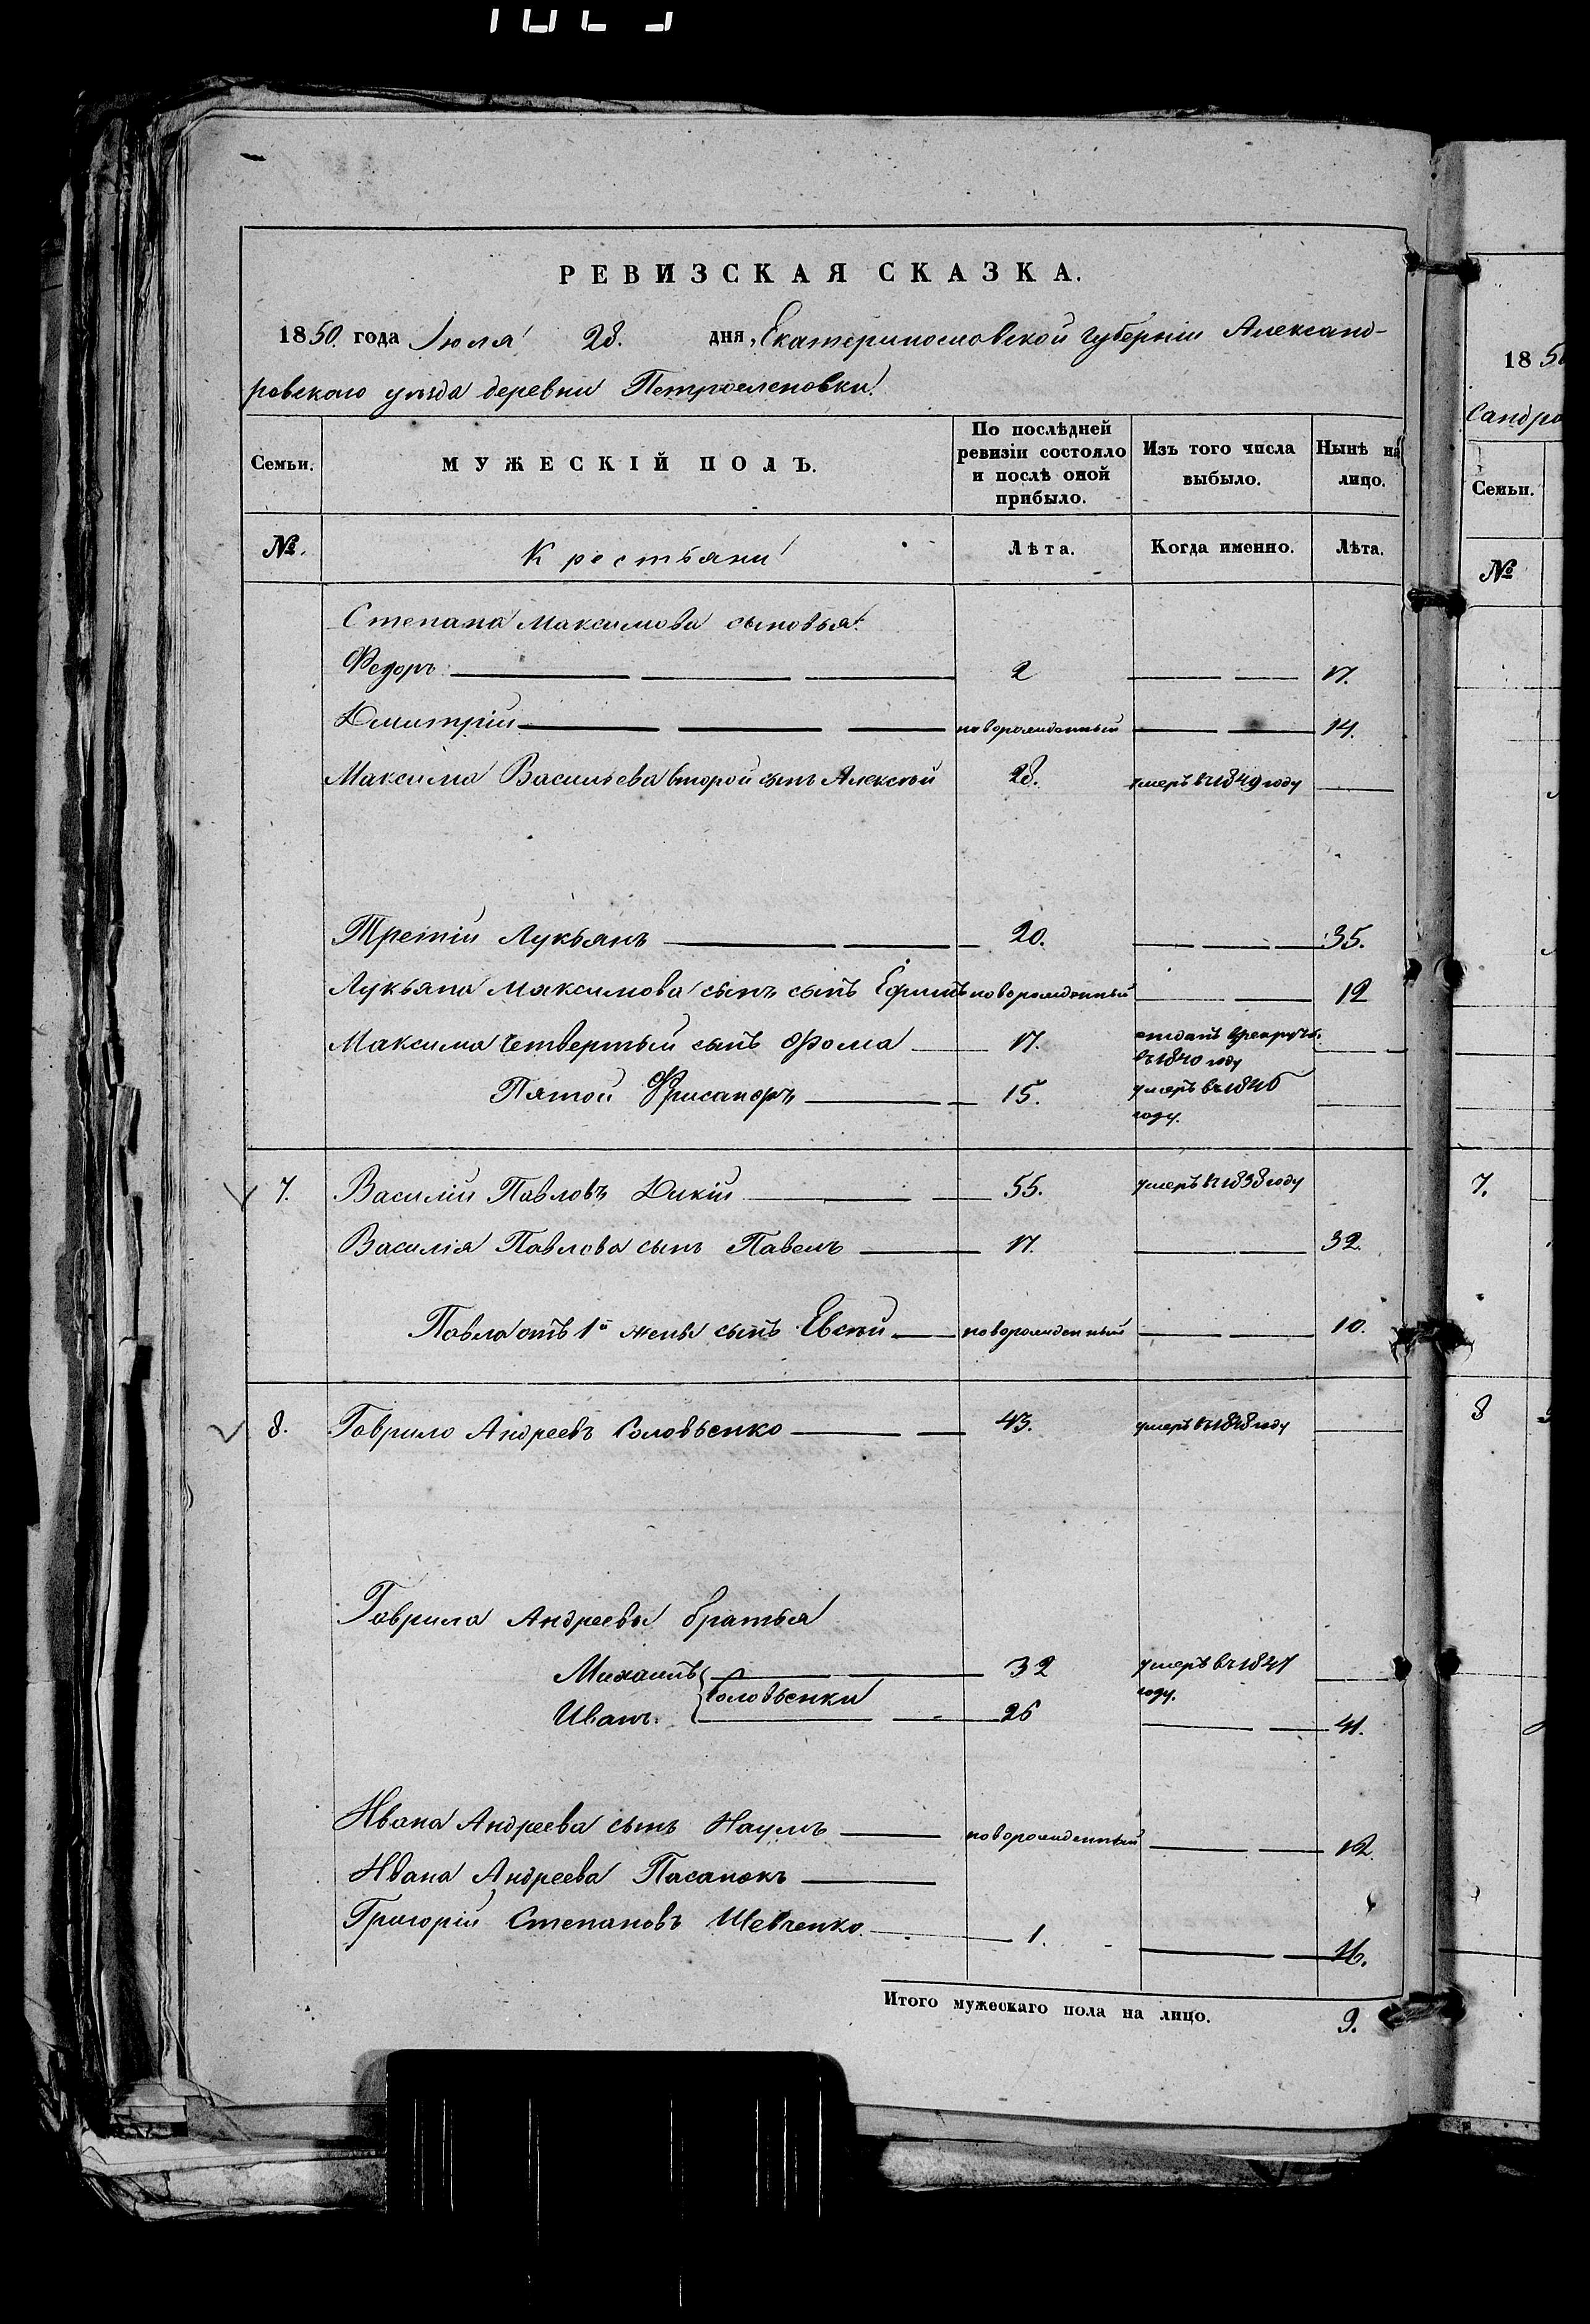 РЕВИЗСКАЯ СКАЗКА.
1850. года Июля 28. дня, Екатеринославской губернiи Александ-
ровского уѣзда деревни Петроеленовки.
Семьи. МУЖЕСКІЙ ПОЛЪ. По послѣдней ревизіи состояло и послѣ оной прибыло. Изъ того числа выбыло. Нынѣ на лицо.
№. Крестьяни Лѣта. Когда именно. Лѣта.
Степана Максимова сыновья:
Федоръ 2 17.
Дмитрій новорожденный 14.
Максима Васильева второй сынъ Алексѣй 28. умеръ въ 1849 году
Третій Лукьянъ 20. 35.
Лукьяна Максимова сынъ сынъ Ефимъ новорожденный 12
Максима Четвертый сынъ Фома 17. отданъ врекруты въ 1840 году
Пятой 15. умеръ въ 1846 году.
7. Василій Павловъ Дикій 55. умеръ въ 1838 году
Василія Павлова сынъ Павелъ 17. 32.
Павла отъ 1й жены сынъ Евсѣй новорожденный 10.
8. Гаврило Андреевъ Соловьенко 43. умеръ въ 1848 году
Гаврила Андреевы братья
Михаилъ 32 умеръ въ 1847 году.
Соловьенки
Иванъ. 26 41.
Ивана Андреева сынъ Наумъ новорожденный 12.
Ивана Андреева Пасанокъ
Григорій Степановъ Шевченко. 1. 16.
Итого мужескаго пола на лицо. 9.
18 50
Сандро
Семьи.
№
7.
8